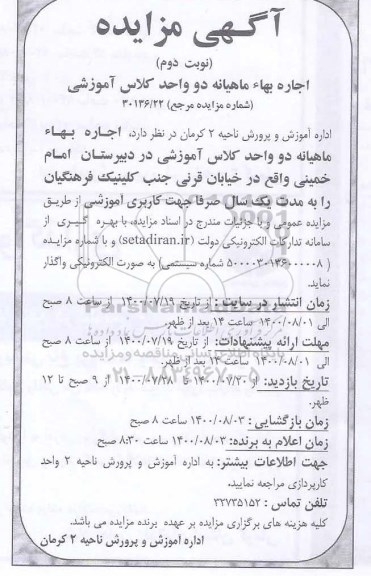 آگهی مزایده
(نوبت دوم)
اجاره بهاء ماهیانه دو واحد کلاس آموزشی
(شماره مزایده مرجع) ۳۰۱۳۶/۲۲
اداره آموزش و پرورش ناحیه ۲ کرمان در نظر دارد، اجاره بهاء
ماهیانه دو واحد کلاس آموزشی در دبیرستان امام
خمینی واقع در خیابان قرنی جنب کلینیک فرهنگیان
را به مدت یک سال صرفا جهت کاربری آموزشی از طریق
مزایده عمومی و با جزئیات مندرج در اسناد مزایده، با بهره گیری از
سامانه تدارکات الکترونیکی دولت (setadiran.ir) و با شماره مزایده
شماره سیستمی) به صورت الکترونیکی واگذار
نماید.
زمان انتشار در سایت : از تاریخ ۱۴۰۰/۰۷/۱۹ از ساعت ۸ صبح
الی ۱۴۰۰/۰۸/۰۱ ساعت ۱۴ بعد از ظهر.
مهلت ارائه پیشنهادات: از تاریخ ۱۴۰۰/۰۷/۱۹ از ساعت ۸ صبح
الی ۱۴۰۰/۰۸/۰۱ ساعت ۱۴ بعد از ظهر.
تاریخ بازدید: از ۱۴۰۰/۰۷/۲۰ تا ۱۴۰۰/۰۷/۲۸ از ۹ صبح تا ۱۲
ظهر.
زمان بازگشایی : ۱۴۰۰/۰۸/۰۳ ساعت ۸ صبح
زمان اعلام به برنده: ۱۴۰۰/۰۸/۰۳ ساعت ۸:۳۰ صبح
جهت اطلاعات بیشتر: به اداره آموزش و پرورش ناحیه ۲ واحد
کارپردازی مراجعه نمایید.
تلفن تماس : ۳۲۷۳۵۱۵۲
کلیه هزینه های برگزاری مزایده بر عهده برنده مزایده می باشد.
اداره آموزش و پرورش ناحیه ۲ کرمان